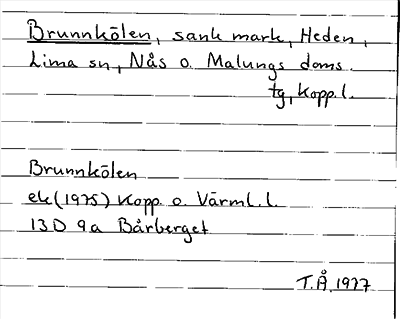 Brunnkölen, sank mark, Heden,
Lima sn, Nås o. Malungs doms.
tg, Kopp. l.
Brunnkölen
ek (1975) Kopp. o. Värml. l.
13D 9a Bårberget
T.Å. 1977